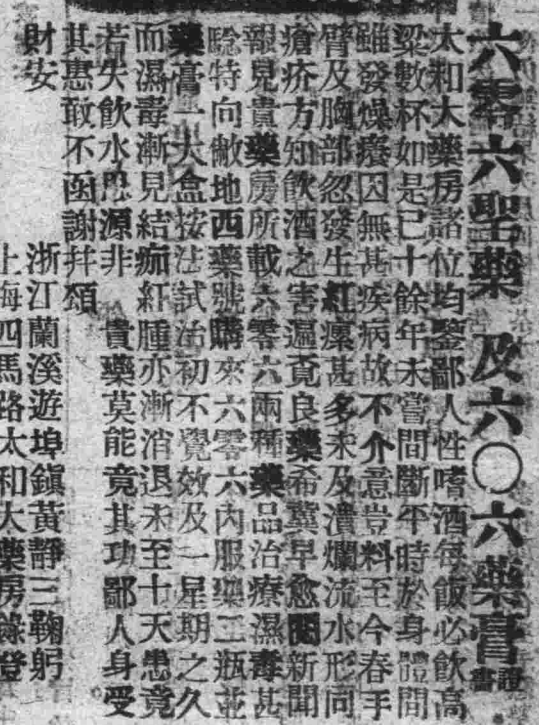 六零六聖藥 及六〇六藥膏證書
太和大藥房諸位均鑒鄙人性嗜酒每飯必飲高
粱數杯如是已十餘年未嘗間斷平時於身體間
雖發燥癢因無甚疾病故不介意豈料至今春手
臂及胸部忽發生紅瘰甚多未及潰爛流水形同
瘡疥方知飲酒之害遍覓良藥希冀早愈閱新聞
報見貴藥房所載六零六兩種藥品治療濕毒甚
驗特向敝地西藥號購來六零六內服藥二瓶並
藥膏一大盒按法試治初不覺效及一星期之久
而濕毒漸見結痂紅腫亦漸消退未至十天患竟
若失飲水思源非 貴藥莫能竟其功鄙人身受
其惠敢不函謝幷頌
財安
浙江蘭溪遊埠鎮黃靜三鞠躬
上海四馬路太和大藥房錄登